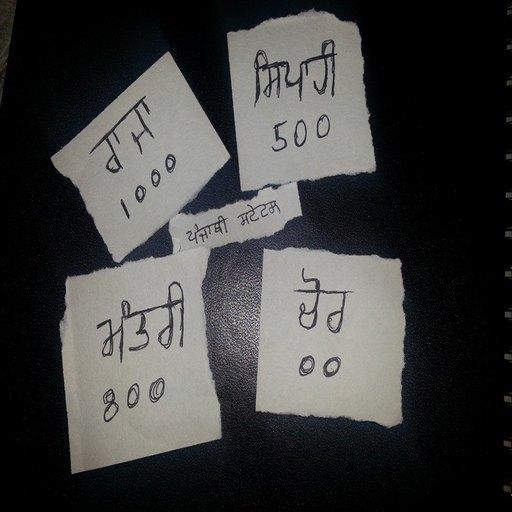 ਰਾਜਾ
1000
ਸਿਪਾਹੀ
500
ਪੰਜਾਬੀ ਸਟੇਟਸ
ਮੰਤਰੀ
800
ਚੋਰ
00